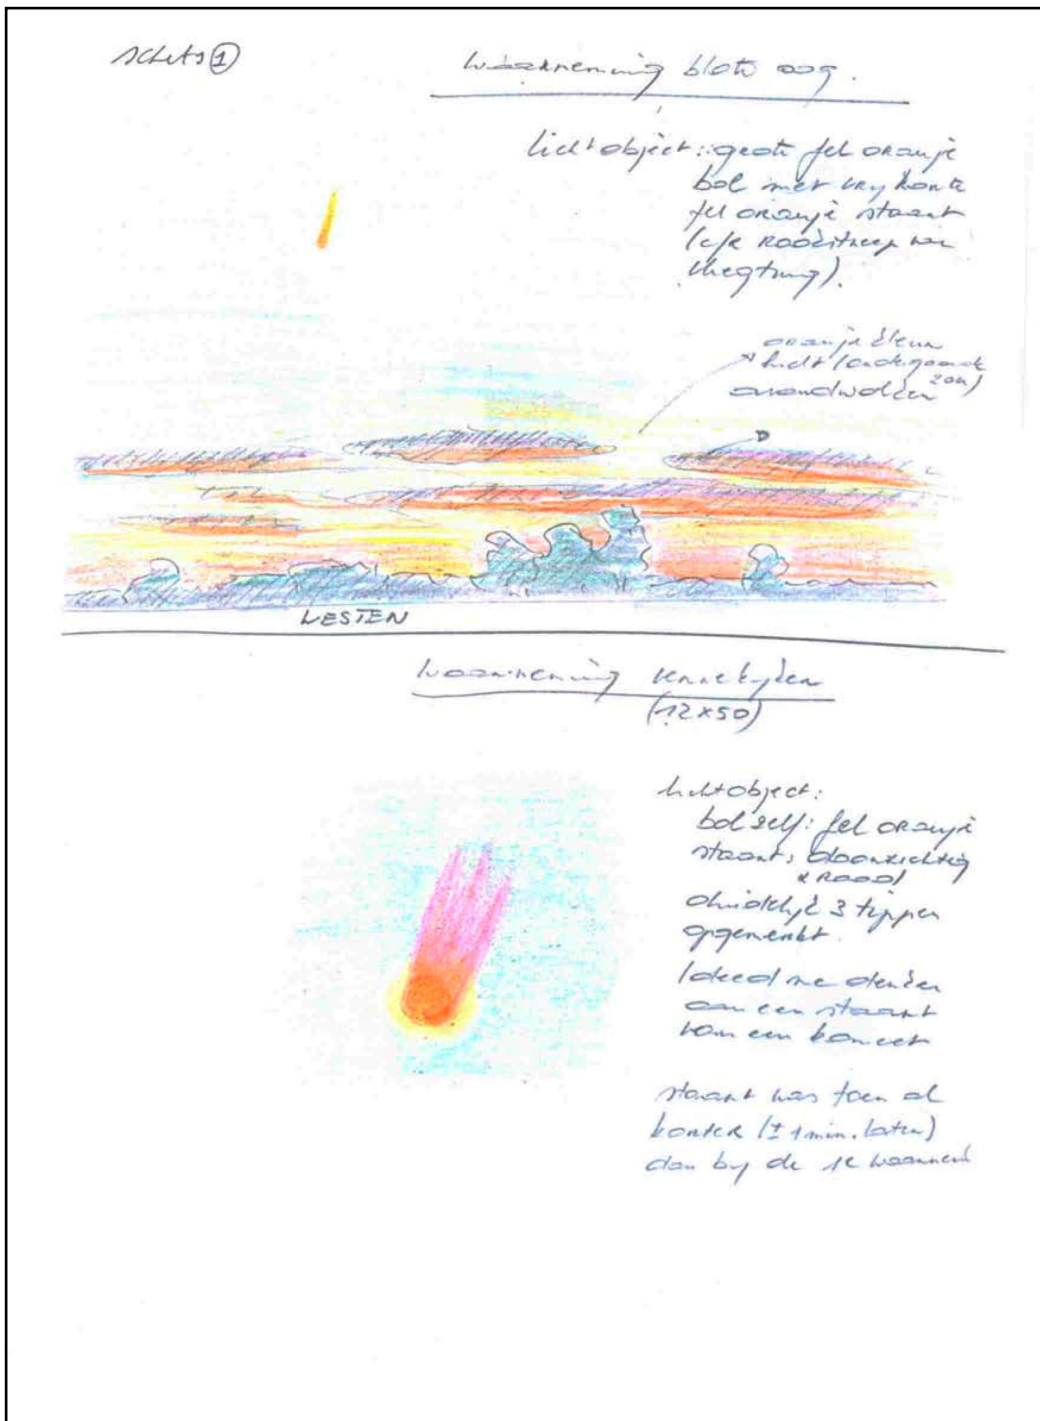 schets 1
waarneming blote oog.
lichtobject: grote fel oranje
bol met vrij korte
fel oranje staart
(c/k rode streep van
vliegtuig).
oranje kleur
lucht (ondergaande
zon)
avondwolken
WESTEN
waarneming verrekijker
(12x50)
lichtobject:
bol zelf: fel oranje
staart: doorzichtig
& rood
duidelijk 3 tippen
opgemerkt.
(deed me denken
aan een staart
van een komeet
staart was toen al
korter (± 1 min. later)
dan bij de 1e waarnem